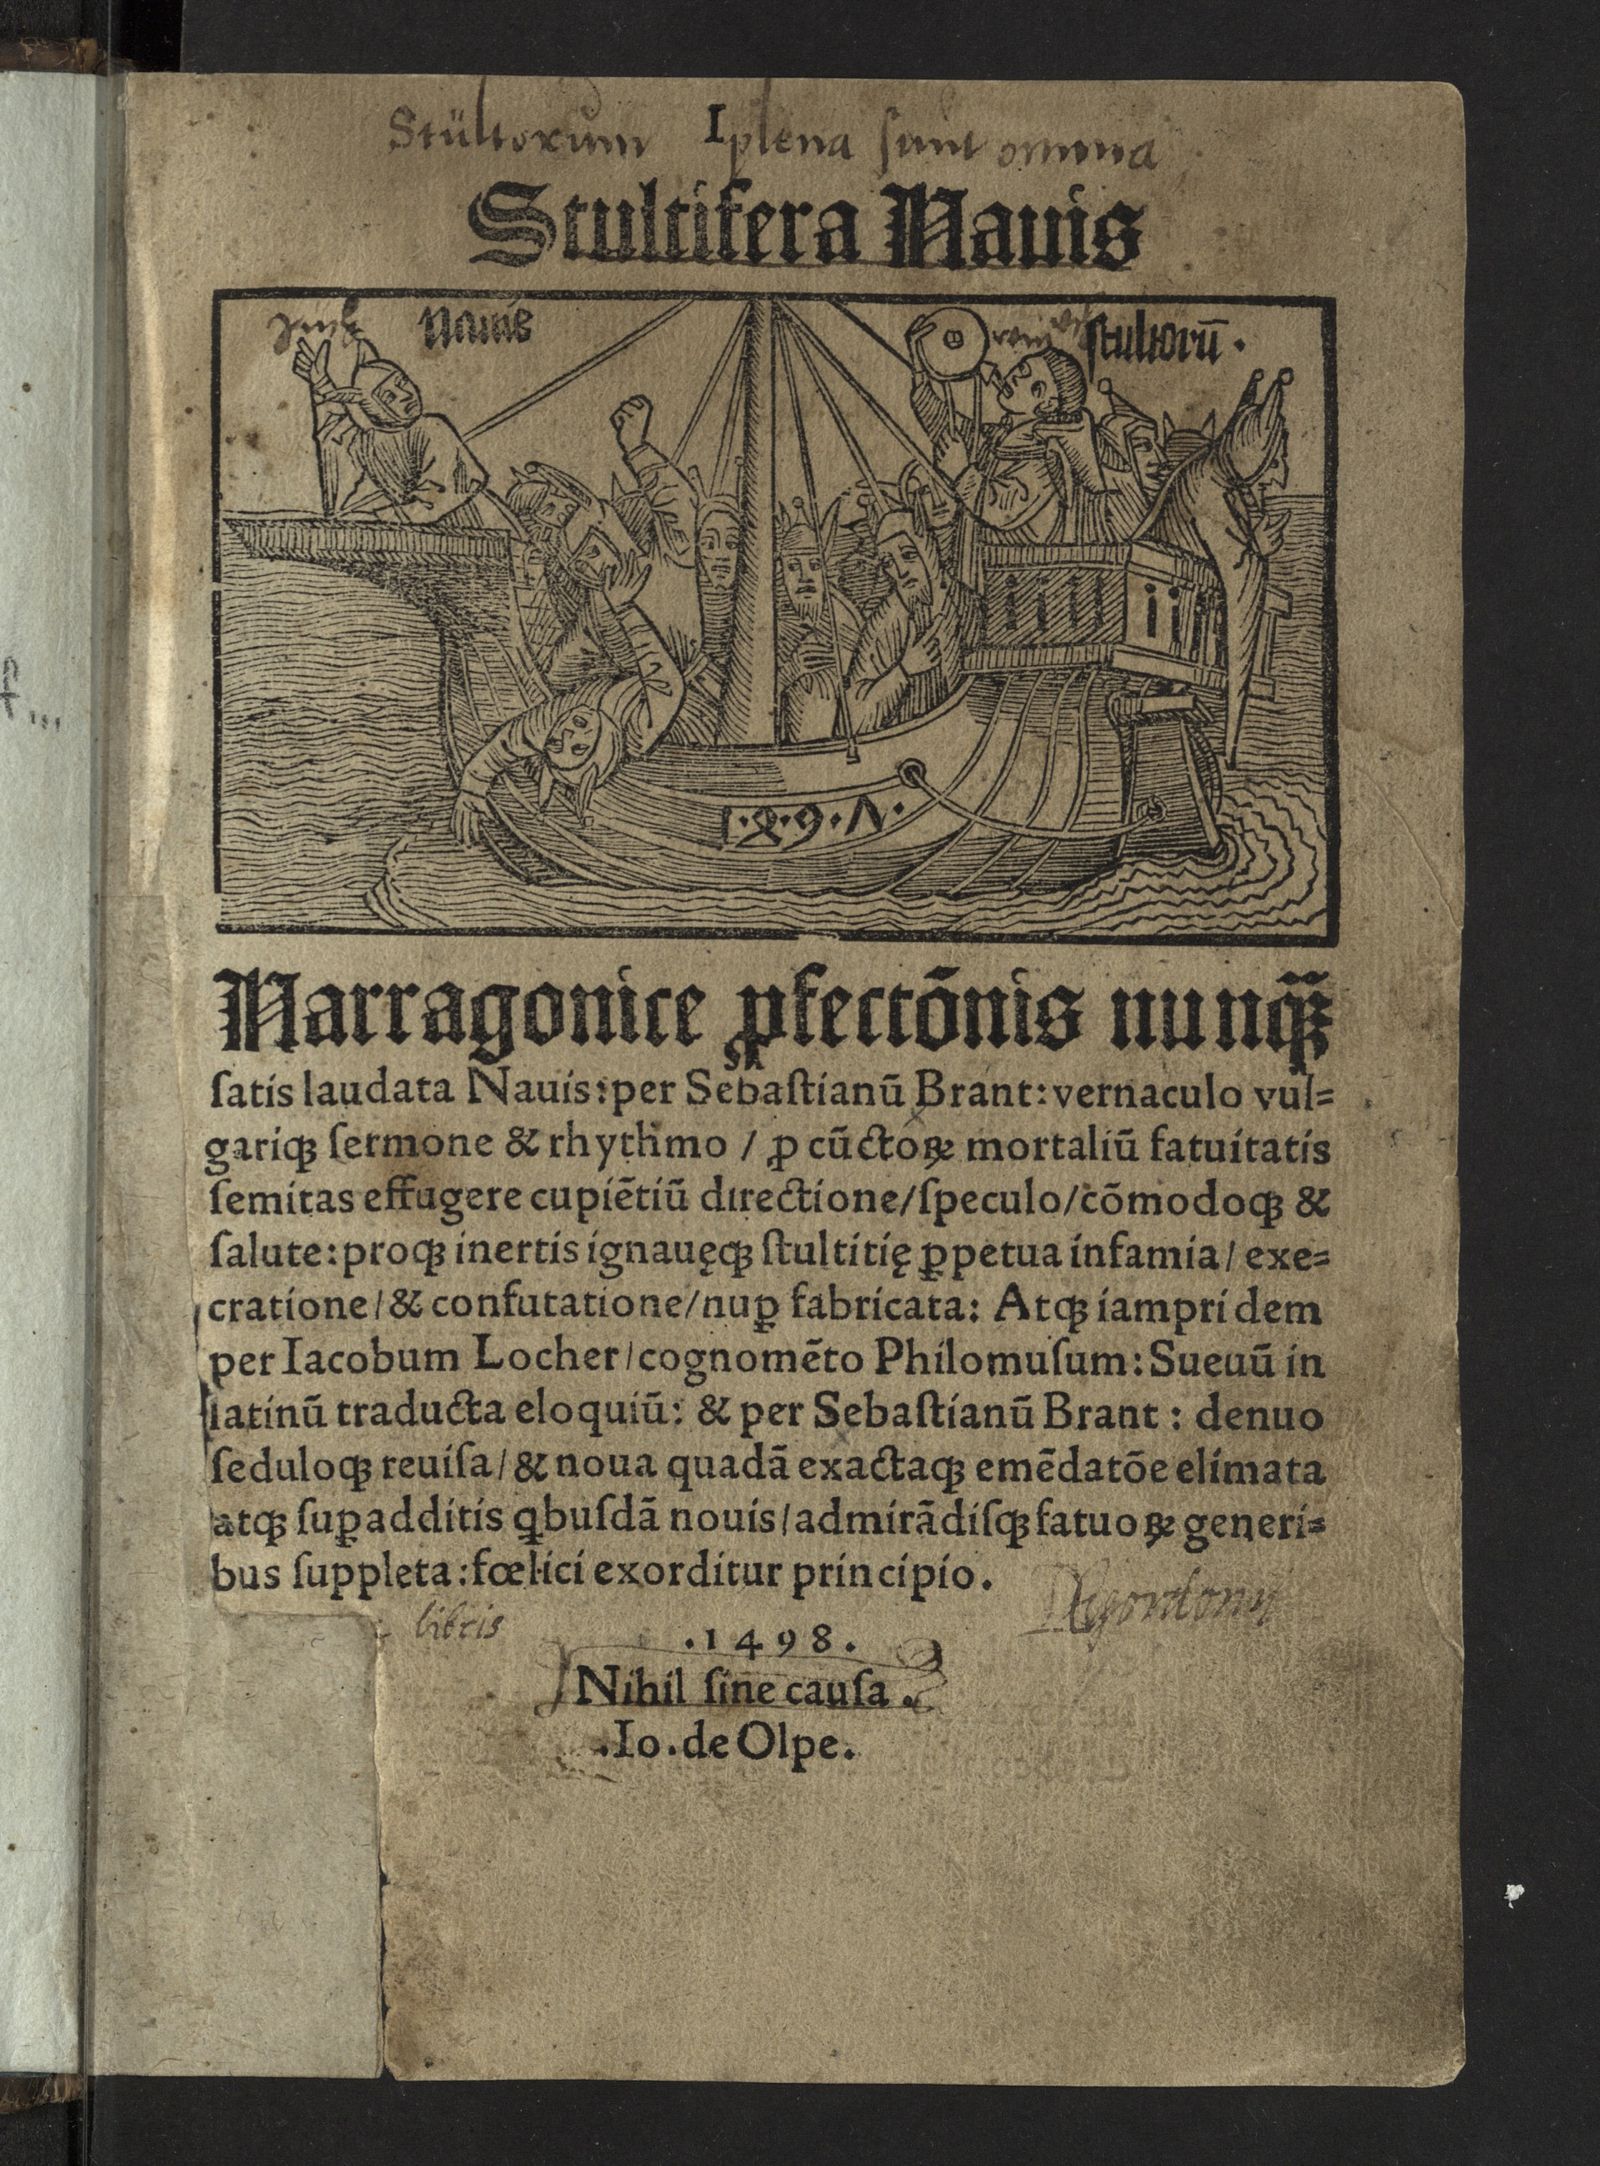 I
Stultorum plena sunt omnia
Stultifera Nauis
Nauis stultorū.
1.4.9.7.
Narragonice ꝓfectōnis nunqꝫ̄
ſatis laudata Nauis: per Sebaſtianū Brant: vernaculo vul⸗
gariqꝫ ſermone & rhythmo / ꝓ cūctoꝝ mortaliū fatuitatis
ſemitas effugere cupiētiū directione/ſpeculo/cōmodoqꝫ &
ſalute: proqꝫ inertis ignauęqꝫ ſtultitię ꝑpetua infamia/ exe⸗
cratione/& confutatione/nuꝑ fabricata: Atqꝫ iampridem
per Iacobum Locher/cognomēto Philomuſum: Sueuū in
latinū traducta eloquiū: & per Sebaſtianū Brant: denuo
ſeduloqꝫ reuiſa/& noua quadā exactaqꝫ emēdatōe elimata
atqꝫ ſuꝑadditis qbuſdā nouis/admirādiſqꝫ fatuoꝝ generi⸗
bus ſuppleta: fœlici exorditur principio.
libris
.1498.
Nihil ſine cauſa.
.Io.de Olpe.